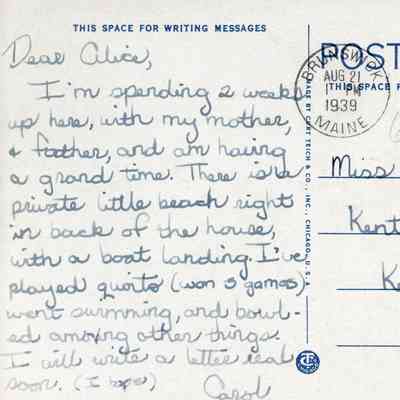 THIS SPACE FOR WRITING MESSAGES
Dear Alice,
I'm spending 2 weeks
up here, with my mother,
& father, and am having
a grand time. There is a
private little beach right
in back of the house,
with a boat landing. I've
played quoits (won 3 games)
went swimming, and bowl-
ed among other things.
I will write a letter real
soon. (I hope)
Carol
MADE BY CURT TEICH & CO., INC., CHICAGO, U.S.A.
POST
THIS SPACE F
BRUNSWICK
AUG 21
PM
1939
MAINE
Miss
Kent